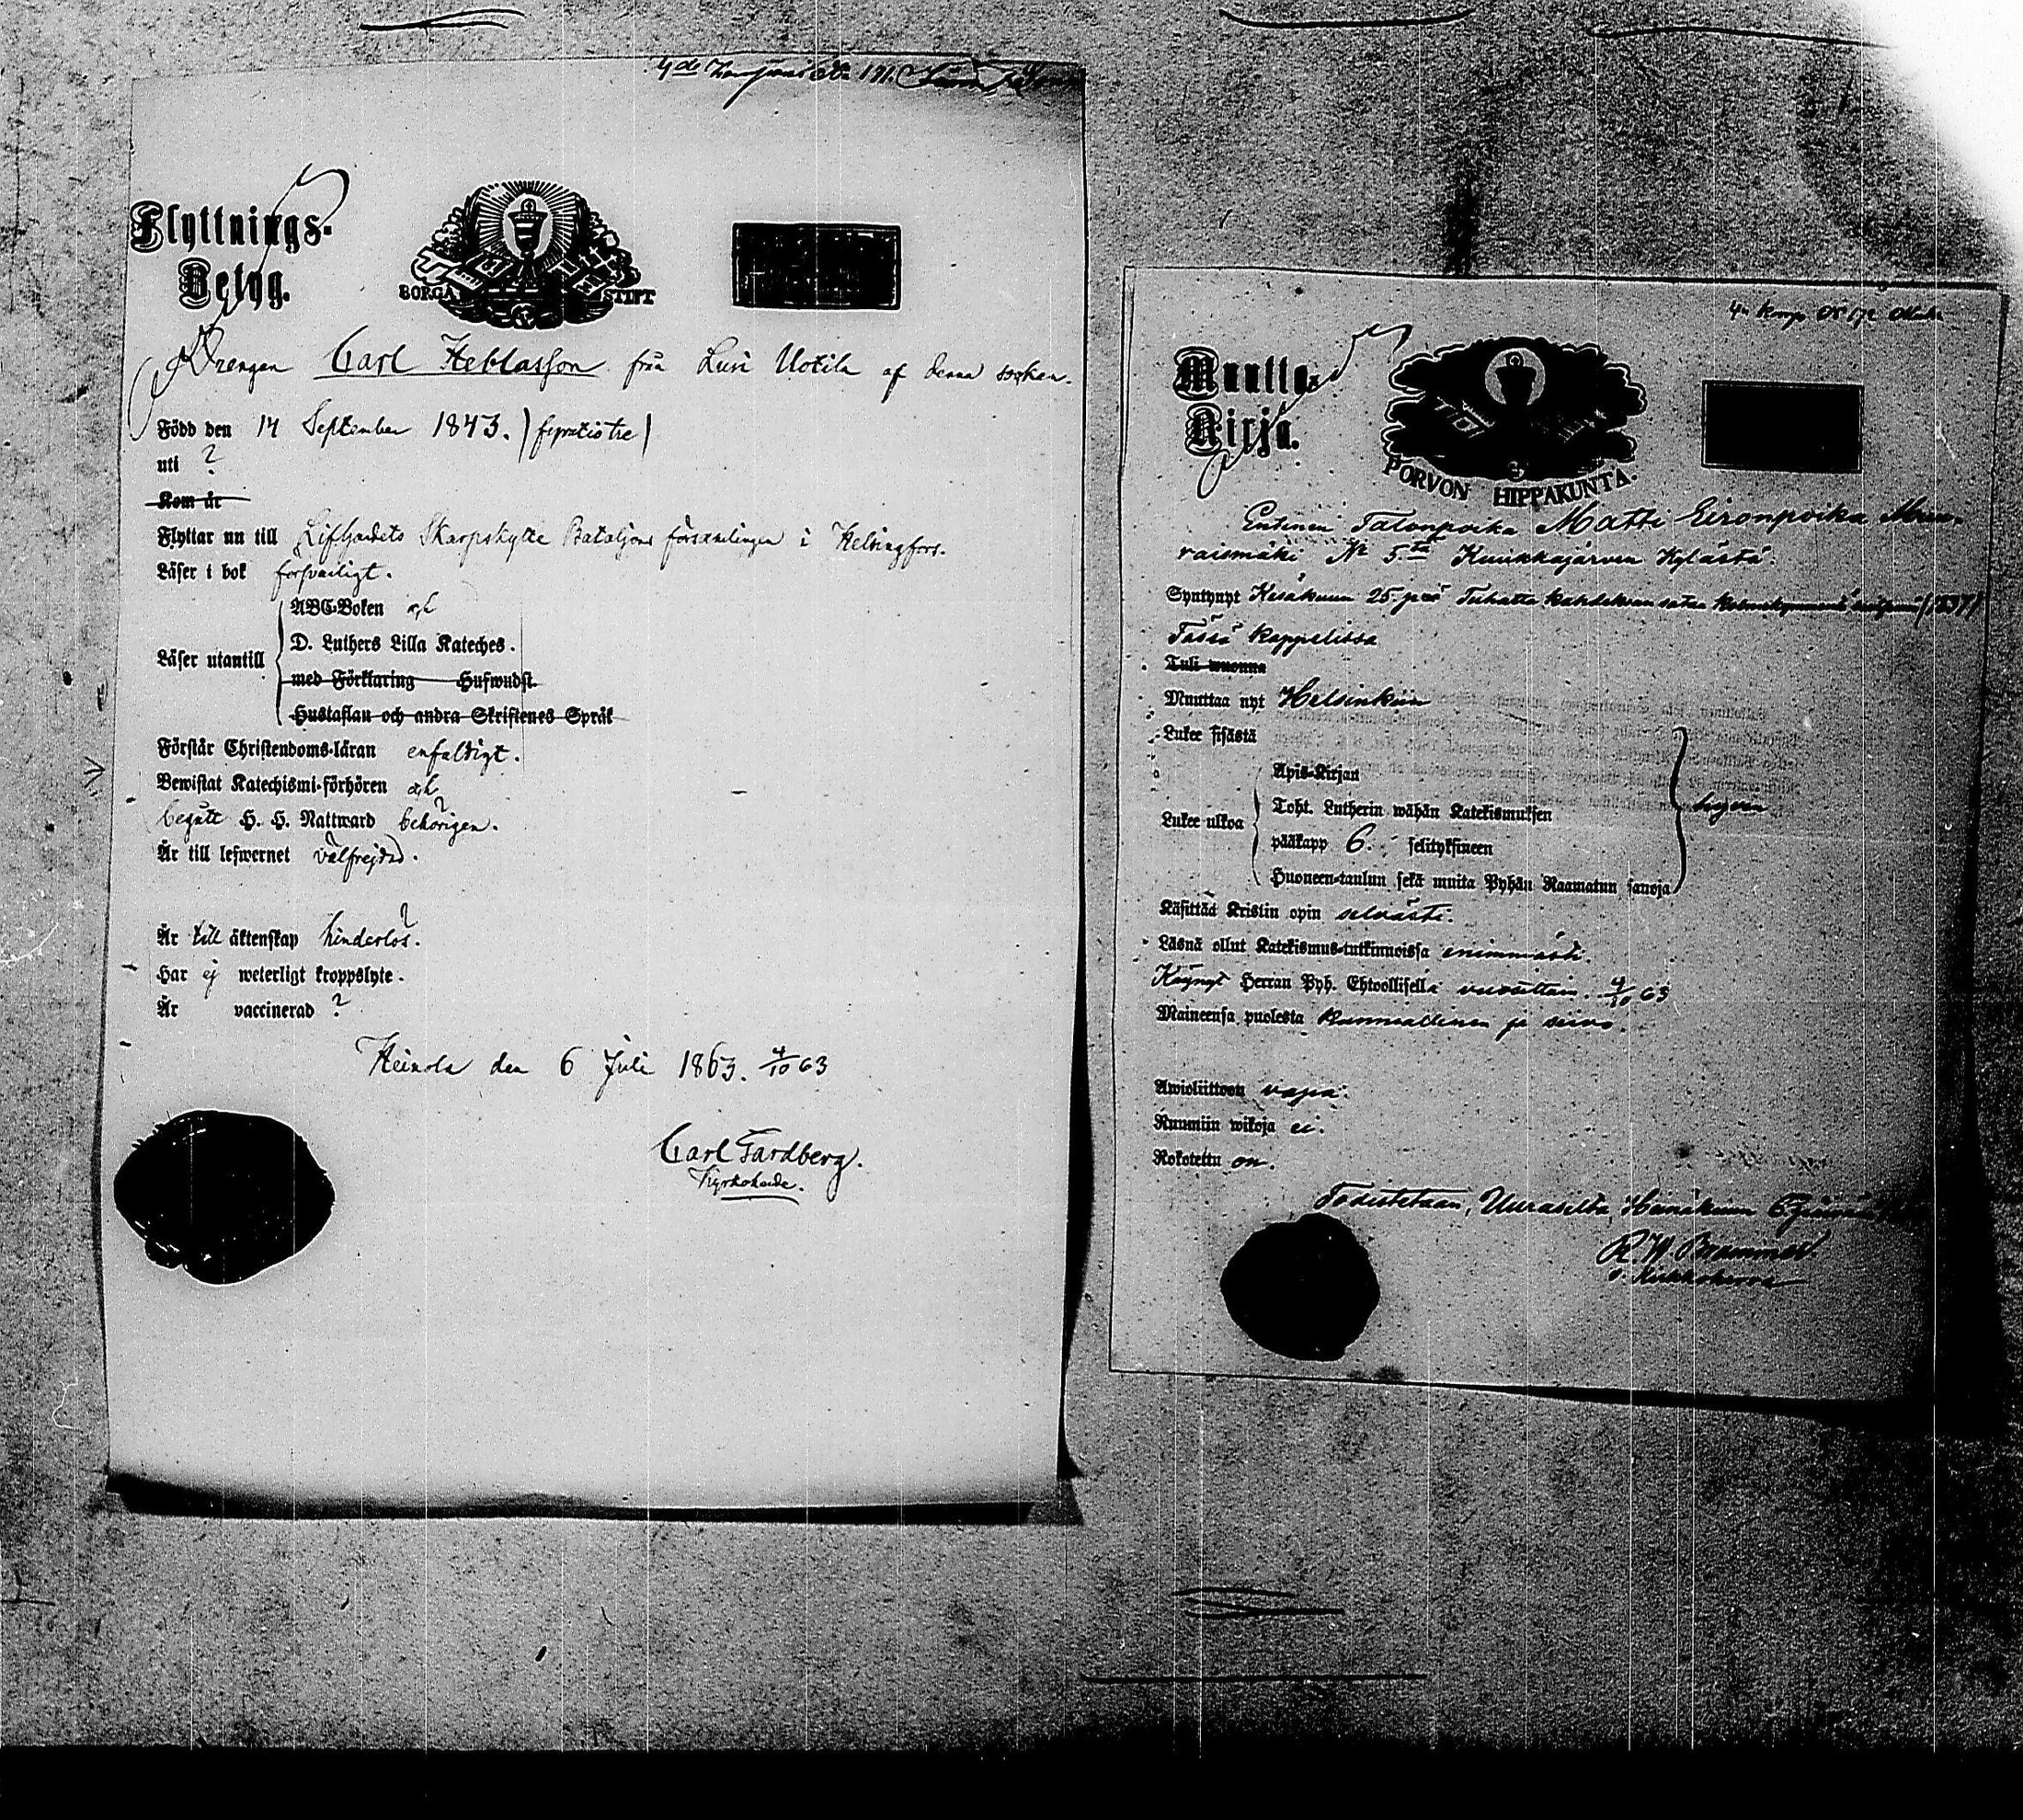 4de
Flyttnings-
Betyg.
BORGÅ STIFT
Drengen Carl Heblasson från Lusi Uotila af denna socken.
Född den 14 September 1843. (fyratiotre)
uti ?
Kom år
Flyttar nu till Lifgardets Skarpskytte Bataljons församlingen i Helsingfors.
Läser i bok försvarligt.
ABC-Boken och
D. Luthers Lilla Kateches.
Läser utantill
med Förklaring Hufwudst.
Hustaflan och andra Skriftenes Språk
Förstår Christendoms-läran enfaldigt.
Bewistat Katechismi-förhören och
begått H. H. Nattward behörigen.
Är till lefwernet välfrejdad.
Är till äktenskap hinderlös?
Har ej weterligt kroppslyte.
Är vaccinerad ?
Heinola den 6 Juli 1863. 4/10 63
Carl Fardberg.
Kyrkoherde.
Muutto-
Kirja.
PORVON HIPPAKUNTA.
Entinen Talonpoika Matti Eironpoika
raismäki No 5:tä Kuukkajärven Kylästä.
Syntynyt Kesäkuun 25 Tuhatta kahdeksan sataa
Tässä kappelissa
Tuli wuonna
Muuttaa nyt Helsinkiin
Lukee sisästä
Apis-Kirjan
Toht. Lutherin wähän Katekismuksen hyvin
Lukee ulkoa
pääkapp 6. selityksineen
Huoneen-taulun sekä muita Pyhän Raamatun sanoja
Käsittää Kristin opin selvästi.
Läsnä ollut Katekismus-tutkinnoissa enimmästi.
Käynyt Herran Pyh. Ehtoollisella vuosittain. 4/10 63
Maineensa puolesta kunniallinen ja siivo.
Awioliittoon vapa.
Ruumiin wikoja ei.
Rokotettu on.
Todistetaan, Heinäkuun 6
R. W.
v. Kirkkoherra